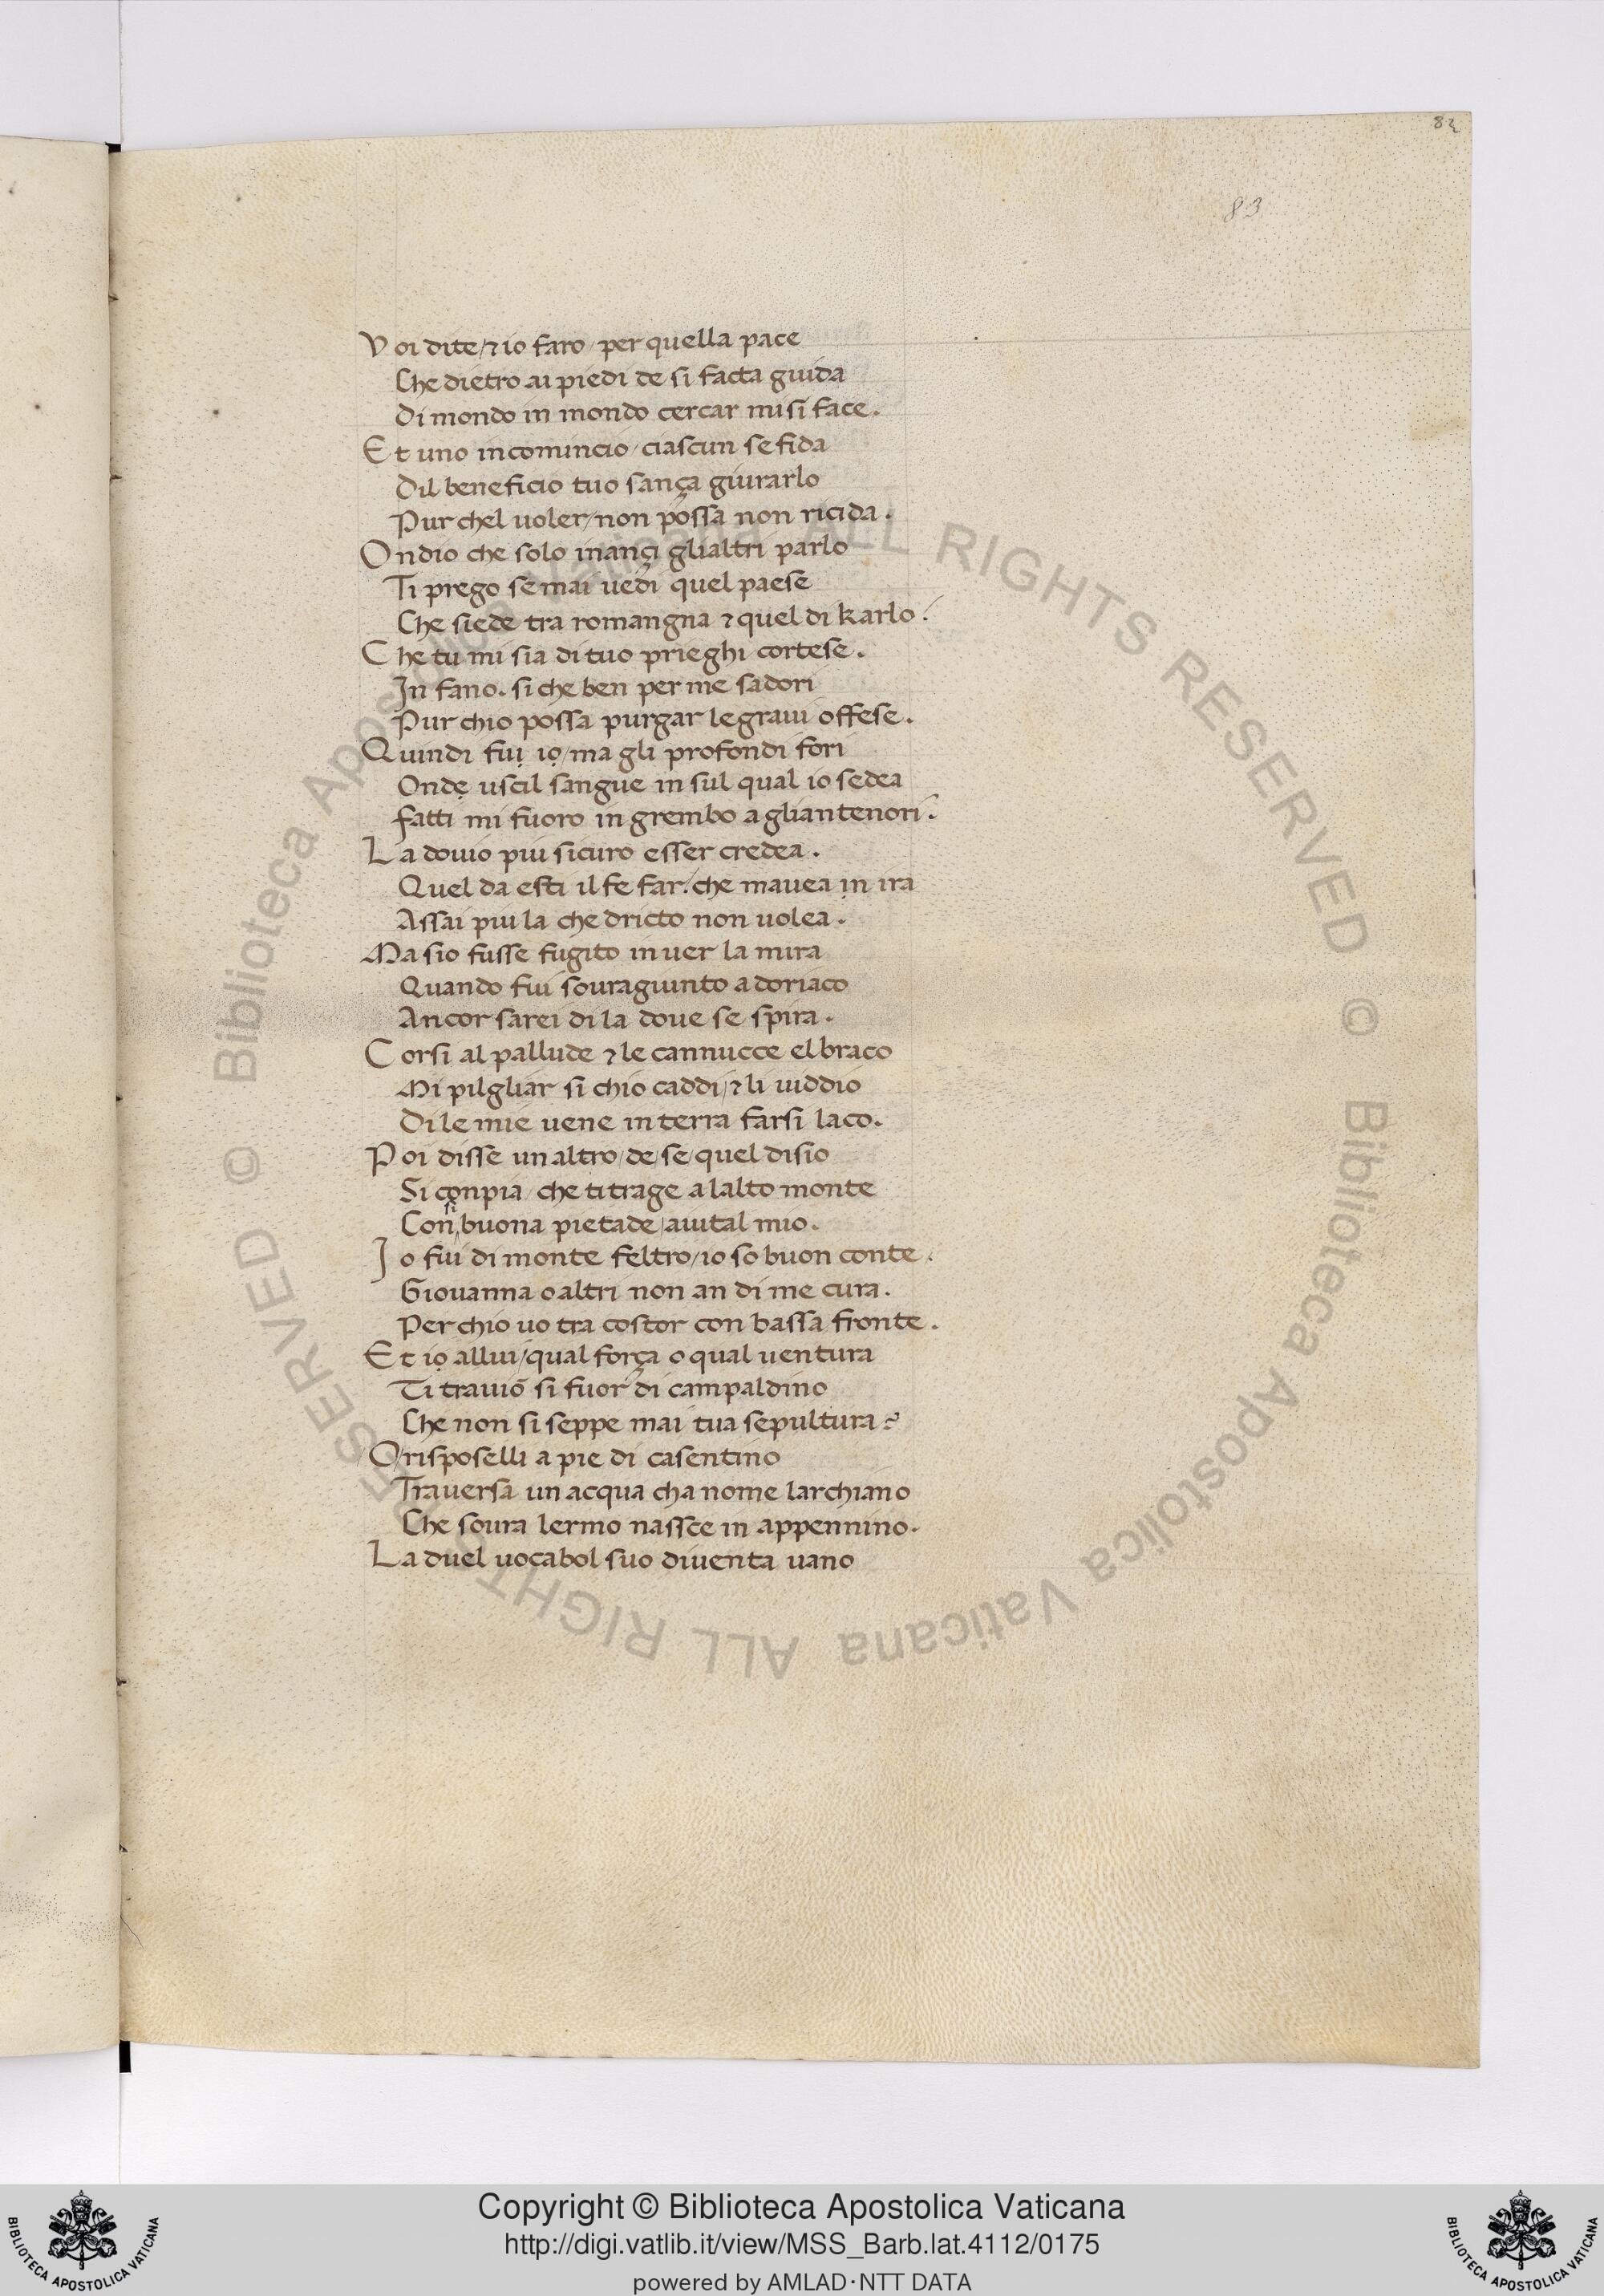 82
83
Voi dite / ⁊ io faro / per quella pace
Che dietro ai piedi de si facta guida
Di mondo in mondo cercar mi si face.
Et uno incomincio / ciascun se fida
Dil beneficio tuo sança giurarlo
Pur chel uoler / non possa non ricida.
Ondio che solo inançi glialtri parlo
Ti prego se mai uedi quel paese
Che siede tra romangna ⁊ quel di karlo.
Che tu mi sia di tuo prieghi cortese.
In fano. si che ben per me sadori
Pur chio possa purgar le graui offese.
Quindi fuị iọ / ma gli profondi fori
Ondẹ uscil sangue in sul qual io sedea
fatti mi fuoro in grembo a gliantenori.
La douio piu sicuro esser credea.
Quel da esti il fe far. che mauea ịn ira
Assai piu la che dricto non uolea.
Ma sio fusse fugito inuer la mira
Quando fui souragiunto a doriaco
Ancor sarei di la doue se spira.
Corsi al pallude ⁊ le cannucce el braco
Mi pilgliar si chio caddi / ⁊ li uiddio
Di le mie uene in terra farsi laco.
Poi disse un altro / de / se / quel disio
Si conpia / che ti trage a lalto monte
Con si buona pietade / aiutal mio.
Io fui di monte feltro / io so buon conte.
Giouanna o altri non an di me cura.
Per chio uo tra costor con bassa fronte.
Et iọ allui / qual força o qual uentura
Ti trauiò si fuor di campaldino
Che non si seppe mai tua sepultura?
O / risposelli a pie di casentino
Trauersa un acqua cha nome larchiano
Che soura lermo nassce in appennino.
La duel uocabol suo diuenta uano
© Biblioteca Apostolica Vaticana ALL RIGHTS RESERVED © Biblioteca Apostolica Vaticana ALL RIGHTS RESERVED
Copyright © Biblioteca Apostolica Vaticana
http://digi.vatlib.it/view/MSS_Barb.lat.4112/0175
powered by AMLAD·NTT DATA
BIBLIOTECA APOSTOLICA VATICANA
BIBLIOTECA APOSTOLICA VATICANA